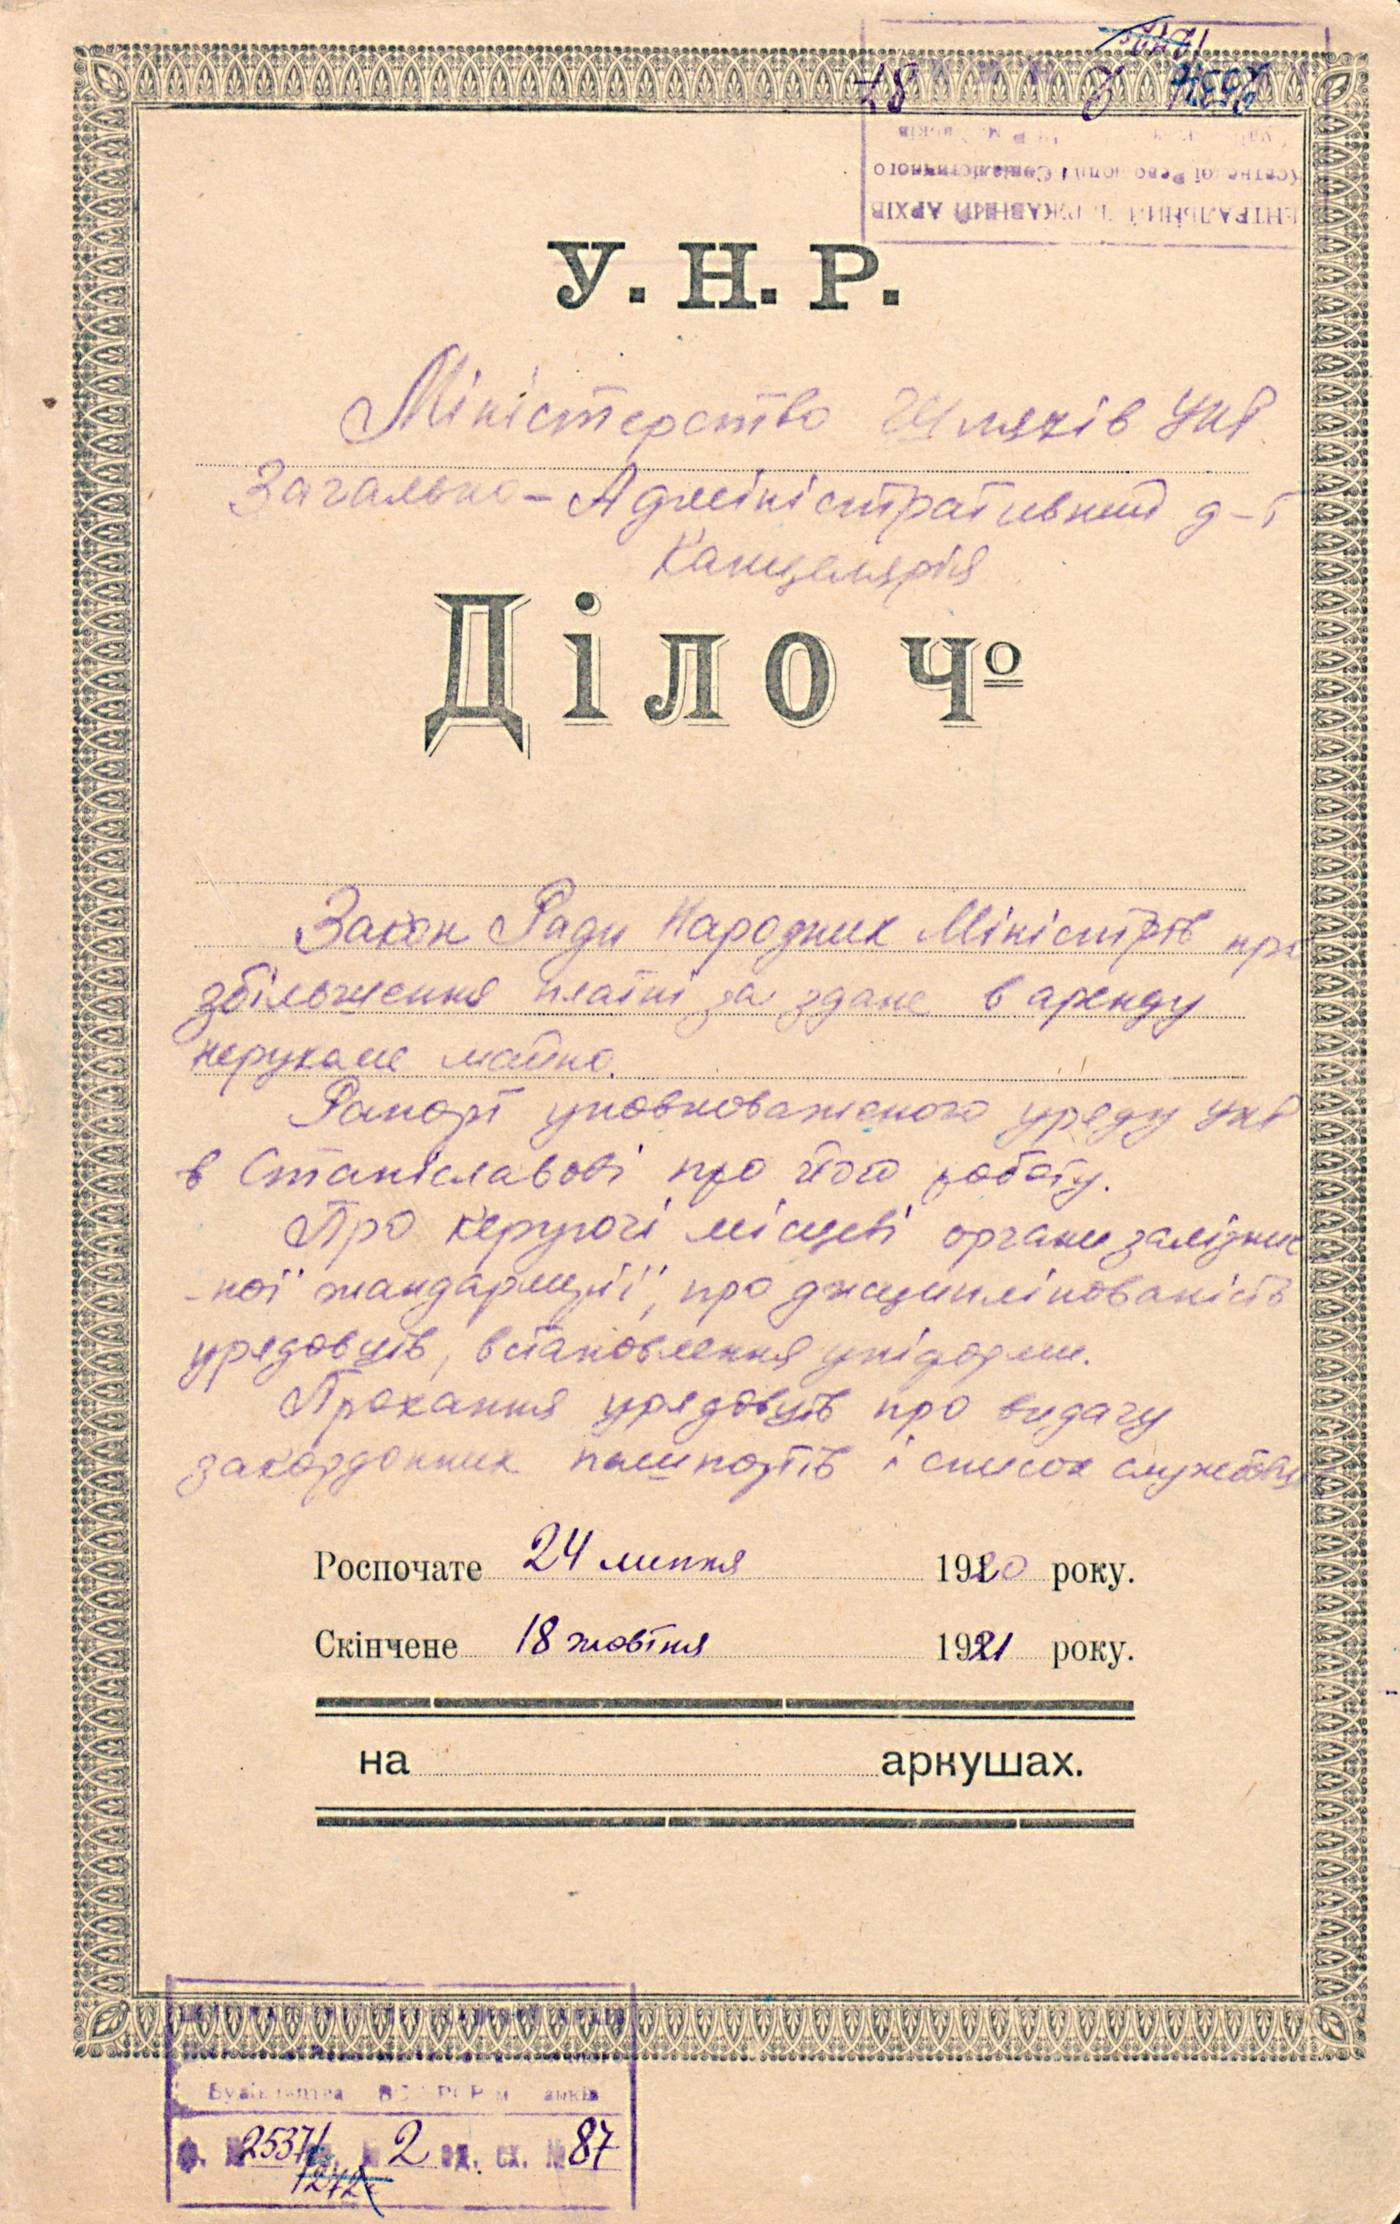 У. Н. Р.
Міністерство Шляхів УНР
Загально-Адміністративний д-т
Канцелярія
Діло Чо
Закон Ради Народних Міністрів про
збільшення платні за здане в аренду
нерухоме майно.
Рапорт уповноваженого уряду УНР
в Станіславові про його роботу.
Про керуючі місцеві органи залізнич
-ної жандармерії, про дисциплінованість
урядовців, встановлення уніформи.
Прохання урядовців про видачу
закордонних пашпортів і список службовців
Роспочате 24 липня 1920 року.
Скінчене 18 жовтня 1921 року.
на аркушах.
ЦЕНТРАЛЬНИЙ ДЕРЖАВНИЙ АРХІВ
Жовтневої Революції і Соціалістичного
2537 2 87
Будівництва
ф. № 2537 2 од. сх. № 87
1272